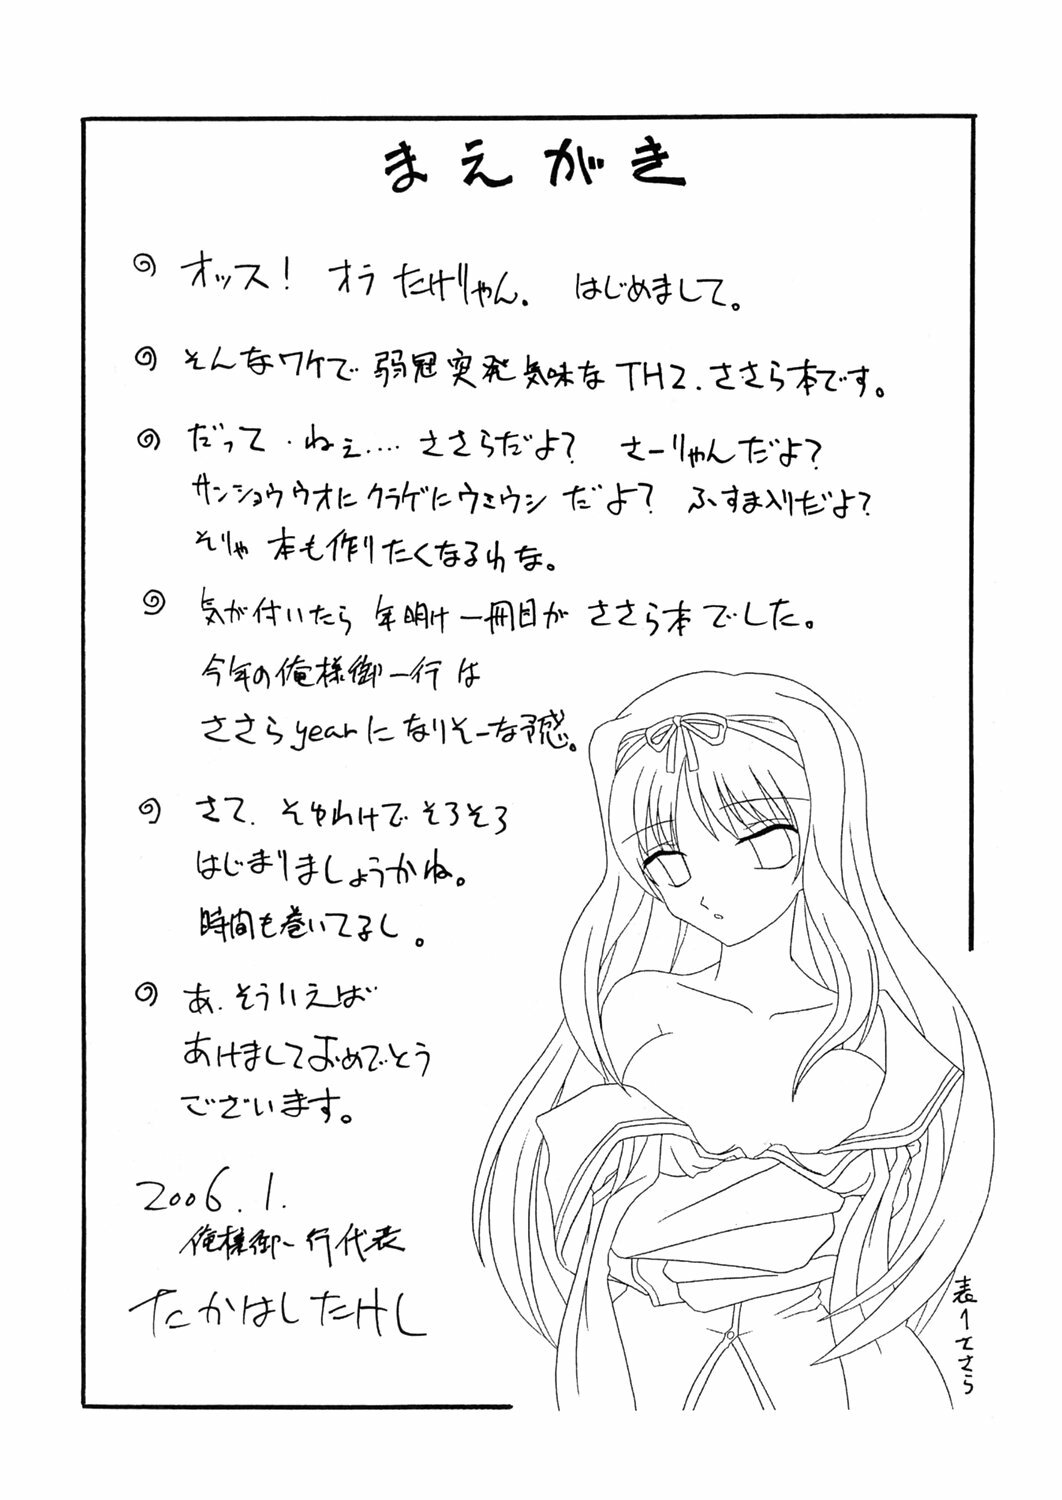 まえがき
オッス! オラ たけりゃん. はじめまして。
そんなワケで 弱冠突発気味な TH2.ささら本です。
だって・ねぇ.... ささらだよ? さーりゃんだよ?
サンショウウオにクラゲにウミウシ だよ? ふすま入りだよ?
そりゃ 本も作りたくなるわな。
気が付いたら 年明け一冊目が ささら本でした。
今年の俺様御一行は
ささらyearになりそーな予感。
さて. そゆわけで そろそろ
はじまりましょうかね。
時間も巻いてるし。
あ.そういえば
あけましておめでとう
ございます。
2006.1.
俺様御一行代表
たかはしたけし
ささら